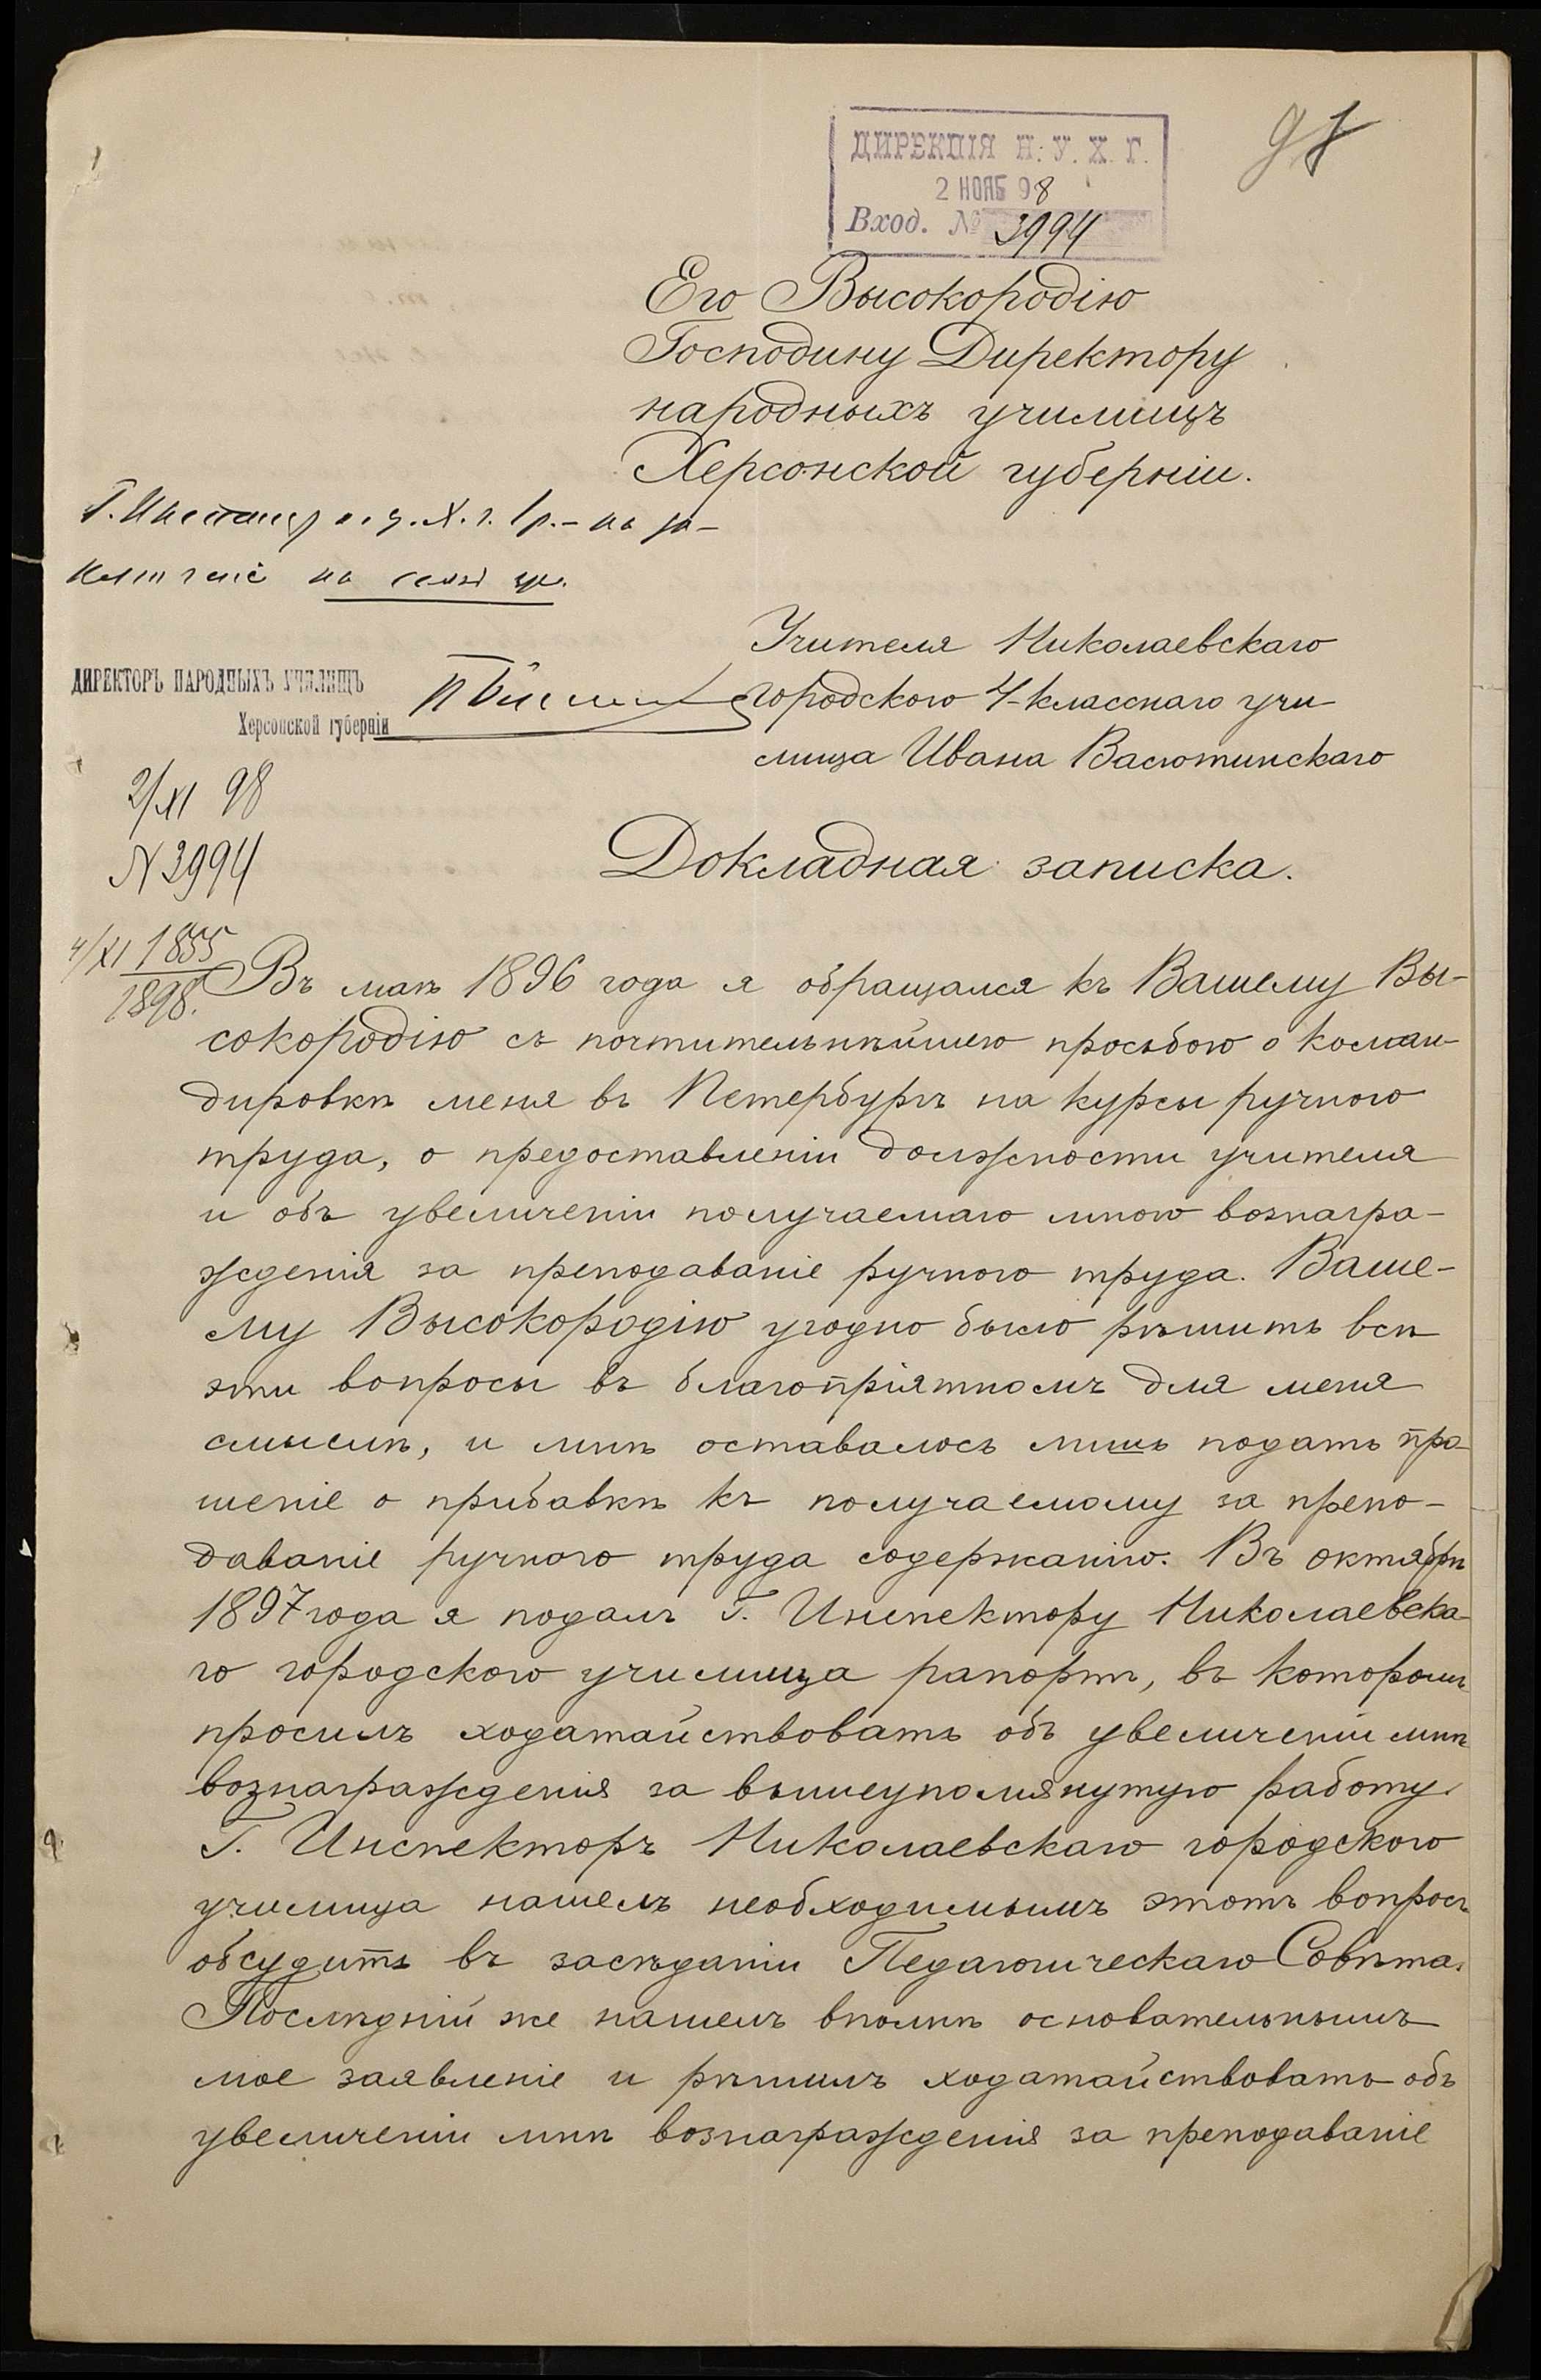 ДИРЕКЦІЯ Н. У. Х. Г.
2 НОЯБ 98
Вход. № 3994
Его Высокородію
Господину Директору
народныхъ училищъ
Херсонской губерніи.
Г.
на
ДИРЕКТОРЪ НАРОДНЫХЪ УЧИЛИЩЪ
Херсонской губерніи
2/XI 98
N 3994
4/XI 1855
1898.
Учителя Николаевскаго
городского 4-класснаго учи-
лища Ивана Васютинскаго
Докладная записка.
Въ маѣ 1896 года я обращался къ Вашему Вы-
сокородію съ почтительнѣйшею просьбою о коман-
дировкѣ меня въ Петербургъ на курсы ручного
труда, о предоставленіи должности учителя
и объ увеличеніи получаемаго мною вознагра-
жденія за преподаваніе ручного труда. Ваше-
му Высокородію угодно было рѣшить всѣ
эти вопросы въ благопріятномъ для меня
смыслѣ, и мнѣ оставалось лишь подать про-
шеніе о прибавкѣ къ получаемому за препо-
даваніе ручного труда содержанію. Въ октябрѣ
1897 года я подалъ Г. Инспектору Николаевска-
го городского училища рапортъ, въ которомъ
просилъ ходатайствовать объ увеличеніи мнѣ
вознагражденія за вышеупомянутую работу.
Г. Инспекторъ Николаевскаго городского
училища нашелъ необходимымъ этотъ вопросъ
обсудить въ засѣданіи Педагогическаго Совѣта.
Послѣдній же нашелъ вполнѣ основательнымъ
мое заявленіе и рѣшилъ ходатайствовать объ
увеличеніи мнѣ вознагражденія за преподаваніе